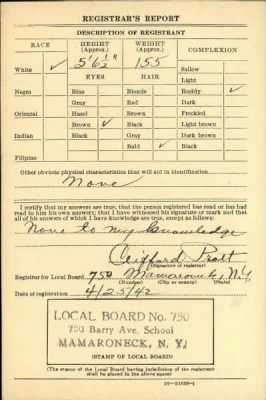 REGISTRAR'S REPORT
DESCRIPTION OF REGISTRANT
RACE HEIGHT (Approx.) WEIGHT (Approx.) COMPLEXION
White ✓ 5' 6 1/2" 155 Sallow
EYES HAIR Light
Negro Blue Blonde Ruddy ✓
Gray Red Dark
Oriental Hazel Brown Freckled
Brown ✓ Black Light brown
Indian Black Gray Dark brown
Bald ✓ Black
Filipino
Other obvious physical characteristics that will aid in identification
None
I certify that my answers are true; that the person registered has read or has had
read to him his own answers; that I have witnessed his signature or mark and that
all of his answers of which I have knowledge are true, except as follows:
None to my Knowledge
Clifford Pratt
(Signature of registrar)
Registrar for Local Board 750 Mamaroneck, N.Y.
(Number) (City or county) (State)
Date of registration 4/25/42
LOCAL BOARD No. 750
750 Barry Ave. School
MAMARONECK, N. Y.
(STAMP OF LOCAL BOARD)
(The stamp of the Local Board having jurisdiction of the registrant
shall be placed in the above space)